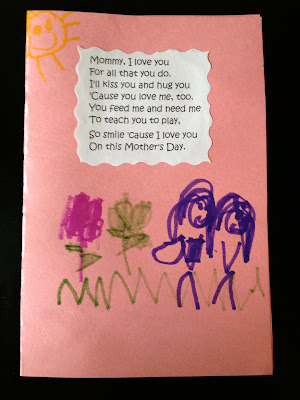 Mommy, I love you
For all that you do.
I'll kiss you and hug you
'Cause you love me, too.
You feed me and need me
To teach you to play,
So smile 'cause I love you
On this Mother's Day.